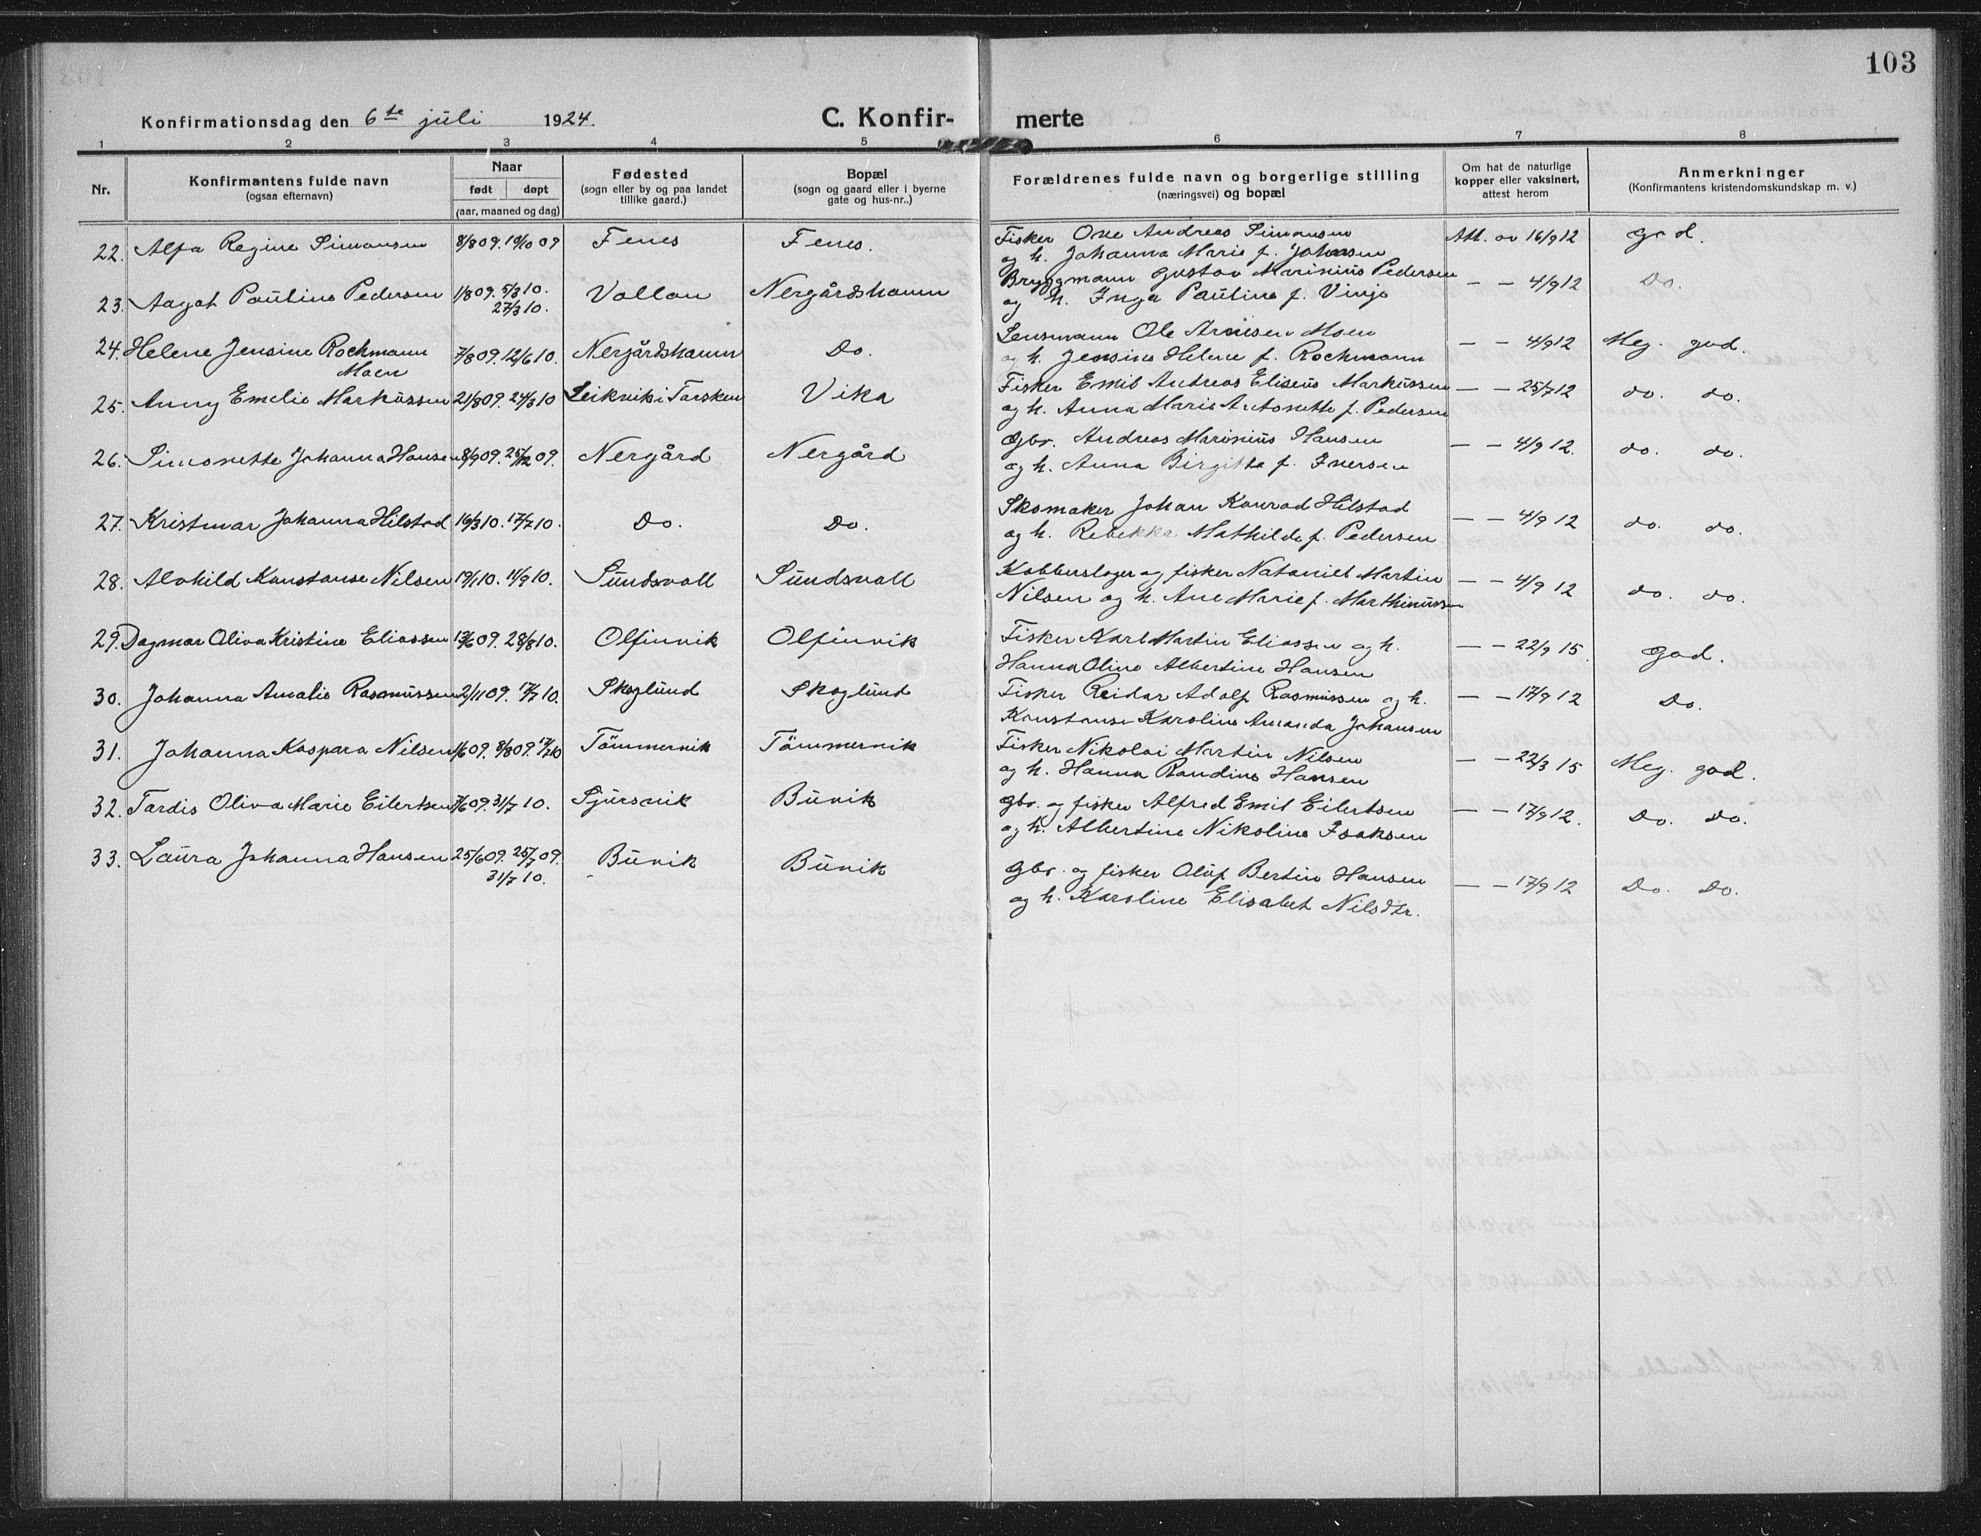 103
Konfirmationsdag den 6te juli 1924. C. Konfir- merte
1 2 3 4 5 6 7 8
Nr. Konfirmantens fulde navn (ogsaa efternavn) Naar født døpt (aar, maaned og dag) Fødested (sogn eller by og paa landet tillike gaard.) Bopæl (sogn og gaard eller i byerne gate og hus-nr..) Forældrenes fulde navn og borgerlige stilling (næringsvei) og bopæl Om hat de naturlige kopper eller vaksinert, attest herom Anmerkninger (Konfirmantens kristendomskundskap m. v.)
22. Alfa Regine Simonsen 8/8 09. 19/10 09 Fenes Fenes. Fisker Ove Andreas Simonsen Att. av 16/9 12 god.
og h. Johanna Marie f. Johnsen
23. Aagot Pauline Pedersen 1/8 09. 5/3 10. Vollan Nergårdshamn Bryggmann Gustav Marinius Pedersen — — 4/9 12 Do.
27/3 10. og h. Inga Pauline f. Vinje
24. Helene Jensine Rochmann 7/8 09. 12/6 10. Nergårdshamn Do. Lensmann Ole Arnesen Moen — — 4/9 12 Meg. god.
Moen og h. Jensine Helene f. Rochmann
25. Anny Emelie Markussen 21/8 09. 24/3 10 Leikvik i Torsken Vika Fisker Emil Andreas Eliseus Markussen — — 25/7 12 do. do.
og h. Anna Marie Antonette f. Pedersen
26. Simonette Johanna Hansen 8/9 09. 25/12 09. Nergård Nergård Gbr. Andreas Marinius Hansen — — 4/9 12. do. do.
og h. Anna Birgitte f. Iversen
27. Kristmar Johanna Hilstad 16/3 10. 17/7 10. Do. Do. Skomaker Johan Konrad Hilstad — — 4/9 12 do. do.
og h. Rebekka Mathilde f. Pedersen
28. Alvhild Konstanse Nilsen 19/1 10. 11/9 10. Sundsvoll Sundsvoll Kobberslager og fisker Nataniel Martin — — 4/9 12 do. do.
Nilsen og h. Ane Marie f. Marthinussen
29. Dagmar Oliva Kristine Eliassen 13/6 09. 28/8 10. Olfinvik Olfinvik Fisker Karl Martin Eliassen og h. — — 22/9 15. god.
Hanna Oline Albertine Hansen
30. Johanna Amalie Rasmussen 2/11 09. 17/7 10. Skoglund Skoglund Fisker Reidar Adolf Rasmussen og h. — — 17/9 12 Do.
Konstanse Karoline Amanda Johansen
31. Johanna Kaspara Nilsen 1/6 09. 8/8 09. 17/7 10 Tömmervik Tömmervik Fisker Nikolai Martin Nilsen — — 22/3 15 Meg. god.
og h. Hanna Randine Hansen
32. Tordis Oliva Marie Eilertsen 7/6 09. 31/7 10. Sjursvik Buvik Gbr. og fisker Alfred Emil Eilertsen — — 17/9 12. Do. Do.
og h. Albertine Nikoline Isaksen
33. Laura Johanna Hansen 25/6 09. 25/7 09. Buvik Buvik Gbr. og fisker Oluf Bertin Hansen — — 17/9 12 Do. Do.
31/7 10. og h. Karoline Elisabet Nilsdtr.